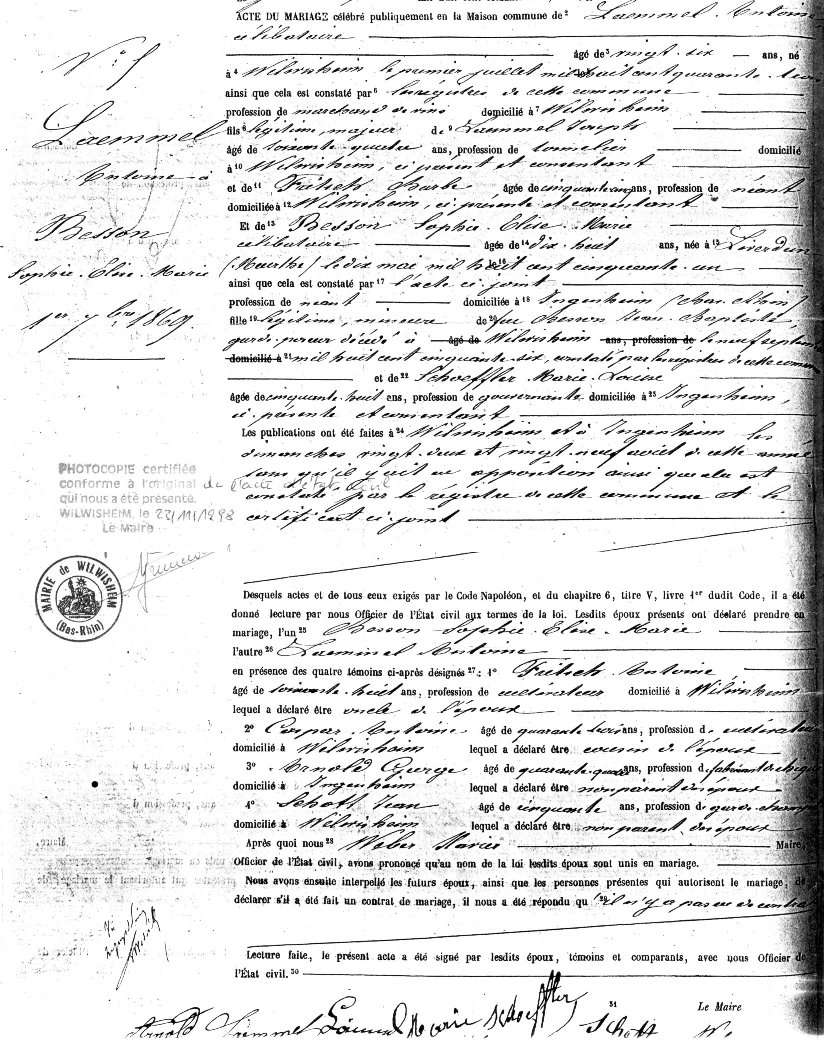 ACTE DU MARIAGE célébré publiquement en la Maison commune de² Laemmel Antoine
célibataire âgé de³ vingt six ans, né
à⁴ Wilwisheim le premier juillet mil huit cent quarante trois
ainsi que cela est constaté par⁶ les registres de cette commune
profession de marchand de vins domicilié à⁷ Wilwisheim
fils⁸ légitime, majeur de⁹ Laemmel Joseph
âgé de soixante quatre ans, profession de tonnelier domicilié
à¹⁰ Wilwisheim, ci présent et consentant
et de¹¹ Fritsch Barbe âgée de cinquante ans, profession de néant
domiciliée à¹² Wilwisheim, ci présente et consentant
Et de¹³ Besson Sophie Elise Marie
célibataire âgée de¹⁴ dix huit ans, née à¹⁵ Liverdun
(Meurthe) le dix mai mil huit cent cinquante un
ainsi que cela est constaté par¹⁷ l'acte ci joint
profession de néant domiciliée à¹⁸ Ingenheim (Bas Rhin)
fille¹⁹ légitime, mineure de²⁰ feu Besson Jean Baptiste,
décédé à âgé de Wilwisheim ans, profession de le neuf septembre
domicilié à²¹ mil huit cent cinquante six, constaté par les registres de cette commune
et de²² Schoeffler Marie Louise
âgée de cinquante huit ans, profession de gouvernante domiciliée à²³ Ingenheim,
ci présente et consentant
Les publications ont été faites à²⁴ Wilwisheim et à Ingenheim les
dimanches vingt deux et vingt neuf août de cette année
sans qu'il y ait eu opposition ainsi que cela est
constaté par le registre de cette commune et le
certificat ci joint
N° 5
Laemmel
Antoine à
Besson
Sophie Elise Marie
1er 7bre 1869
PHOTOCOPIE certifiée
conforme à l'original de l'acte d'état civil
qui nous a été présenté.
WILWISHEIM, le 23/11/1998
Le Maire
MAIRIE de WILWISHEIM
(Bas-Rhin)
Desquels actes et de tous ceux exigés par le Code Napoléon, et du chapitre 6, titre V, livre 1er dudit Code, il a été
donné lecture par nous Officier de l'État civil aux termes de la loi. Lesdits époux présents ont déclaré prendre en
mariage, l'un²⁵ Besson Sophie Elise Marie
l'autre²⁶ Laemmel Antoine
en présence des quatre témoins ci-après désignés²⁷: 1° Fritsch Antoine
âgé de soixante huit ans, profession de cultivateur domicilié à Wilwisheim
lequel a déclaré être oncle de l'époux
2° Caspar Antoine âgé de quarante trois ans, profession de cultivateur
domicilié à Wilwisheim lequel a déclaré être cousin de l'époux
3° Arnold George âgé de quarante quatre ans, profession de fabricant de
domicilié à Ingenheim lequel a déclaré être non parent des époux
4° Schott Jean âgé de cinquante ans, profession de garde champêtre
domicilié à Wilwisheim lequel a déclaré être non parent des époux
Après quoi nous²⁸ Weber Maire,
Officier de l'État civil, avons prononcé qu'au nom de la loi lesdits époux sont unis en mariage.
Nous avons ensuite interpellé les futurs époux, ainsi que les personnes présentes qui autorisent le mariage, de
déclarer s'il a été fait un contrat de mariage, il nous a été répondu qu'²⁹il n'y a pas eu de contrat
Lecture faite, le présent acte a été signé par lesdits époux, témoins et comparants, avec nous Officier de
l'État civil.³⁰
³¹ Le Maire
Arnold Laemmel Lämmel Marie Schoeffler Schott W.